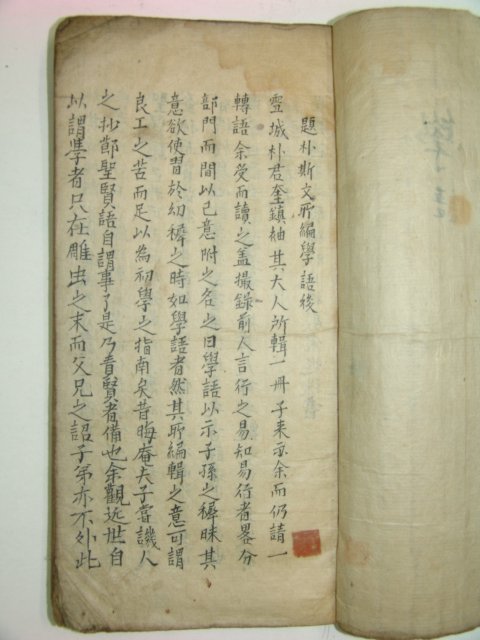 題朴斯文所編學語後
雪城朴君奎鎭袖其大人所輯一冊子来示余而仍請一
轉語余受而讀之盖撮錄前人言行之易知易行者畧分
部門而間以己意附之名之曰學語以示子孫之穉昧其
意欲使習於幼穉之時如學語者然其所編輯之意可謂
良工之苦而足以為初學之指南矣昔晦庵夫子嘗譏人
之抄節聖賢語自謂事了是乃責賢者備也余觀近世自
以謂學者只在雕虫之末而父兄之詔子弟亦不外此